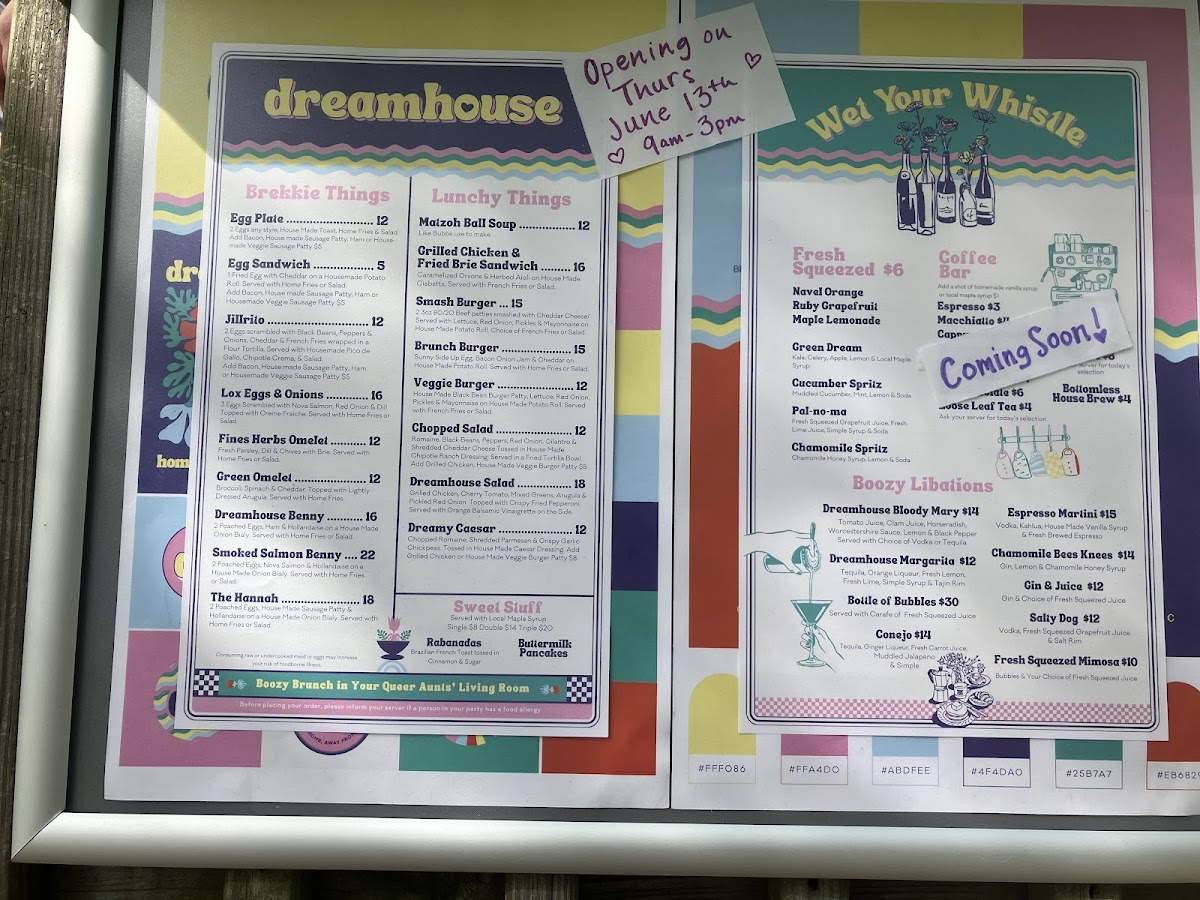 dreamhouse
Opening on
Thurs
June 13th
9am-3pm
Brekkie Things
Egg Plate ........................... 12
2 Eggs any style, House Made Toast, Home Fries & Salad
Add Bacon, House made Sausage Patty, Ham or House-
made Veggie Sausage Patty $5
Egg Sandwich ................... 5
1 Fried Egg with Cheddar on a Housemade Potato
Roll. Served with Home Fries or Salad.
Add Bacon, House made Sausage Patty, Ham or
Housemade Veggie Sausage Patty $5
Jillrito ................................ 12
2 Eggs scrambled with Black Beans, Peppers &
Onions, Cheddar & French Fries wrapped in a
Flour Tortilla. Served with Housemade Pico de
Gallo, Chipotle Crema, & Salad.
Add Bacon, House made Sausage Patty, Ham
or Housemade Veggie Sausage Patty $5
Lox Eggs & Onions .............. 16
3 Eggs Scrambled with Nova Salmon, Red Onion & Dill.
Topped with Creme Fraiche. Served with Home Fries or
Salad
Fines Herbs Omelet ........... 12
Fresh Parsley, Dill & Chives with Brie. Served with
Home Fries or Salad.
Green Omelet ...................... 12
Broccoli, Spinach & Cheddar. Topped with Lightly
Dressed Arugula. Served with Home Fries
Dreamhouse Benny ........... 16
2 Poached Eggs, Ham & Hollandaise on a House Made
Onion Bialy. Served with Home Fries or Salad.
Smoked Salmon Benny .... 22
2 Poached Eggs, Nova Salmon & Hollandaise on a
House Made Onion Bialy. Served with Home Fries
or Salad.
The Hannah ....................... 18
2 Poached Eggs, House Made Sausage Patty &
Hollandaise on a House Made Onion Bialy. Served with
Home Fries or Salad.
Consuming raw or undercooked meat or eggs may increase
your risk of foodborne illness.
Lunchy Things
Matzoh Ball Soup ................. 12
Like Bubbe use to make
Grilled Chicken &
Fried Brie Sandwich ......... 16
Caramelized Onions & Herbed Aioli on House Made
Ciabatta. Served with French Fries or Salad.
Smash Burger ... 15
2 3oz 80/20 Beef patties smashed with Cheddar Cheese/
Served with Lettuce, Red Onion, Pickles & Mayonnaise on
House Made Potato Roll. Choice of French Fries or Salad.
Brunch Burger ...................... 15
Sunny Side Up Egg, Bacon Onion Jam & Cheddar on
House Made Potato Roll. Served with Home Fries or Salad.
Veggie Burger ........................ 12
House Made Black Bean Burger Patty, Lettuce, Red Onion,
Pickles & Mayonnaise on House Made Potato Roll. Served
with French Fries or Salad.
Chopped Salad ...................... 15
Romaine, Black Beans, Peppers, Red Onion, Cilantro &
Shredded Cheddar Cheese Tossed in House Made
Chipotle Ranch Dressing. Served in a Fried Tortilla Bowl
Add Grilled Chicken, House Made Veggie Burger Patty $8
Dreamhouse Salad ............... 18
Grilled Chicken, Cherry Tomato, Mixed Greens, Arugula &
Pickled Red Onion. Topped with Crispy Fried Peppercini.
Served with Orange Balsamic Vinaigrette on the Side
Dreamy Caesar ..................... 12
Chopped Romaine, Shredded Parmesan & Crispy Garlic
Chickpeas. Tossed in House Made Caesar Dressing. Add
Grilled Chicken or House Made Veggie Burger Patty $8
Sweet Stuff
Served with Local Maple Syrup
Single $8 Double $14 Triple $20
Rabanadas
Brazilian French Toast tossed in
Cinnamon & Sugar
Buttermilk
Pancakes
Boozy Brunch in Your Queer Aunts' Living Room
Before placing your order, please inform your server if a person in your party has a food allergy
Wet Your Whistle
Fresh
Squeezed $6
Navel Orange
Ruby Grapefruit
Maple Lemonade
Green Dream
Kale, Celery, Apple, Lemon & Local Maple
Syrup
Cucumber Spritz
Muddled Cucumber, Mint, Lemon & Soda
Pal-no-ma
Fresh Squeezed Grapefruit Juice, Fresh
Lime Juice, Simple Syrup & Soda
Chamomile Spritz
Chamomile Honey Syrup, Lemon & Soda
Coffee
Bar
Add a shot of homemade vanilla syrup
or local maple syrup $1
Espresso $3
Macchiato
Coming Soon!
server for today's
selection
$6
Loose Leaf Tea $4
Ask your server for today's selection
Bottomless
House Brew $4
Boozy Libations
Dreamhouse Bloody Mary $14
Tomato Juice, Clam Juice, Horseradish,
Worcestershire Sauce, Lemon & Black Pepper
Served with Choice of Vodka or Tequila
Dreamhouse Margarita $12
Tequila, Orange Liqueur, Fresh Lemon,
Fresh Lime, Simple Syrup & Tajin Rim
Bottle of Bubbles $30
Served with Carafe of Fresh Squeezed Juice
Conejo $14
Tequila, Ginger Liqueur, Fresh Carrot Juice,
Muddled Jalapeno
& Simple
Espresso Martini $15
Vodka, Kahlua, House Made Vanilla Syrup
& Fresh Brewed Espresso
Chamomile Bees Knees $14
Gin, Lemon & Chamomile Honey Syrup
Gin & Juice $12
Gin & Choice of Fresh Squeezed Juice
Salty Dog $12
Vodka, Fresh Squeezed Grapefruit Juice
& Salt Rim
Fresh Squeezed Mimosa $10
Bubbles & Your Choice of Fresh Squeezed Juice
#FFF086
#FFA4D0
#ABDFEE
#4F4DA0
#25B7A7
#EB6829